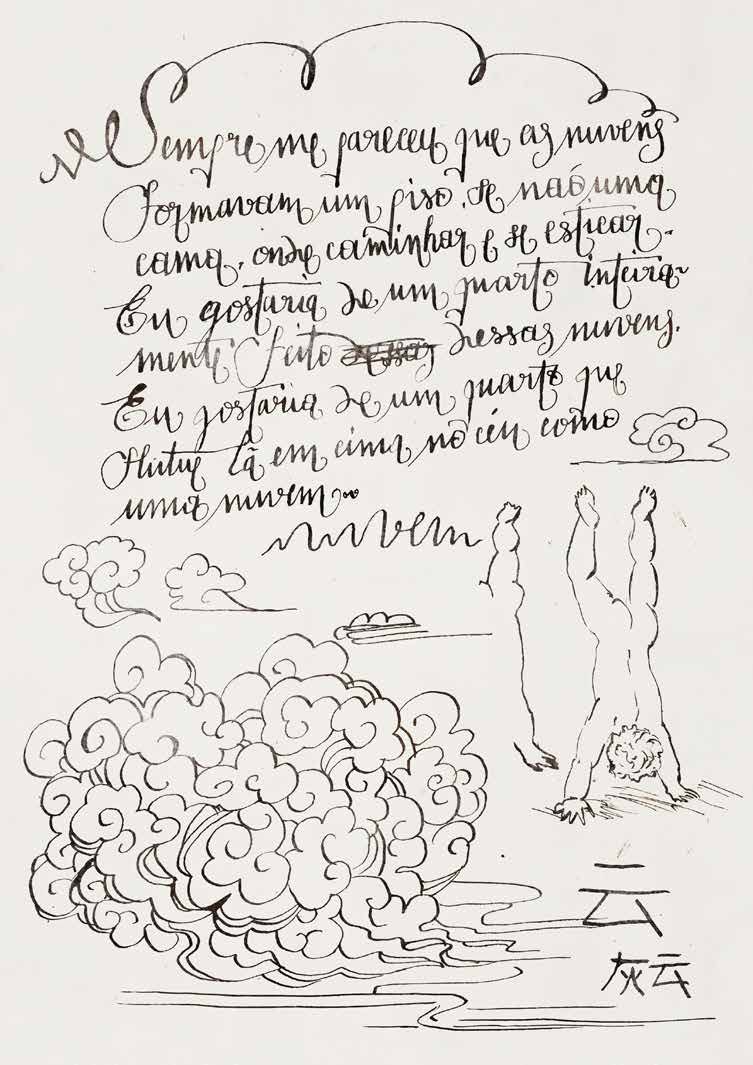 Sempre me pareceu que as nuvens
formavam um piso, se não uma
cama, onde caminhar e se esticar.
Eu gostaria de um quarto inteira-
mente feito dessas nuvens.
Eu gostaria de um quarto que
flutue lá em cima no céu como
uma nuvem.
nuvem
云
灰云